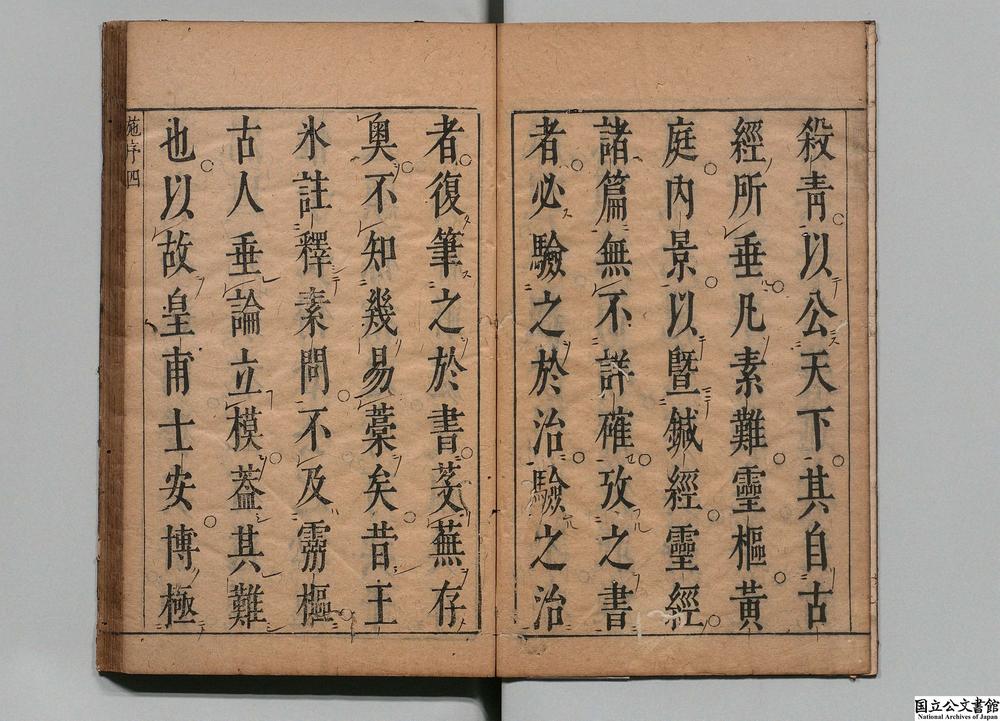 殺青以公天下其自古
經所垂凡素難靈樞黃
庭內景以曁鍼經靈經
諸篇無不詳確攷之書
者必驗之於治驗之治
者復筆之於書芟蕪存
奧不知幾易藁矣昔王
氷註釋素問不及靈樞
古人垂論立模蓋其難
也以故皇甫士安博極
施序四
国立公文書館
National Archives of Japan